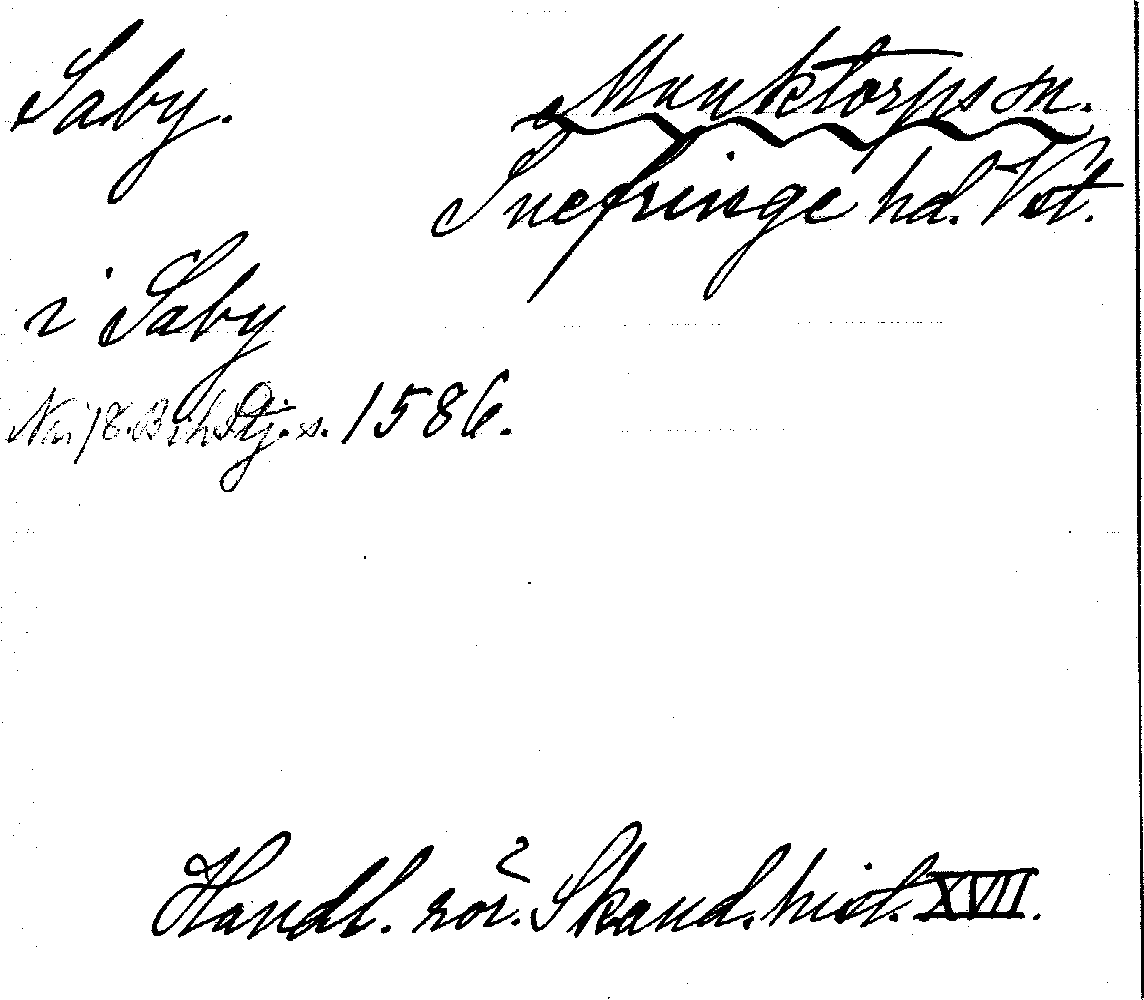 Saby. Munktorps sn.
Snefringe hd. Vst.
i Saby
1586.
Handl. rör. Skand. hist. XVII.